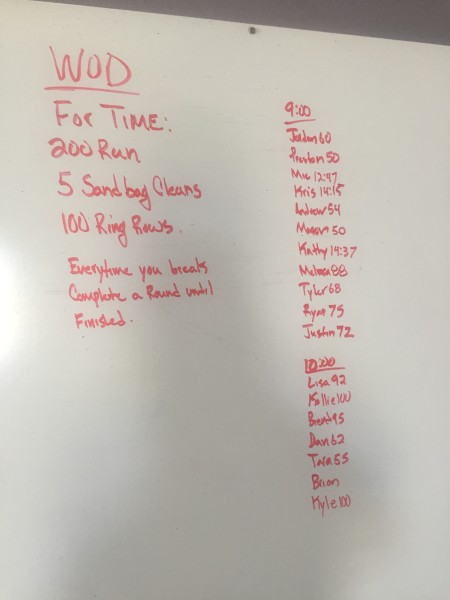 WOD
For Time:
200 Run
5 Sandbag Cleans
100 Ring Rows.
Everytime you break
Complete a Round until
Finished.
9:00
Jordan 60
Preston 50
Mic 12:47
Kris 14:15
Andrew 54
Mason 50
Kathy 14:37
Melissa 88
Tyler 68
Ryan 75
Justin 72
10:00
Lisa 92
Kollie 100
Brent 95
Dan 62
Tara 55
Brian
Kyle 100